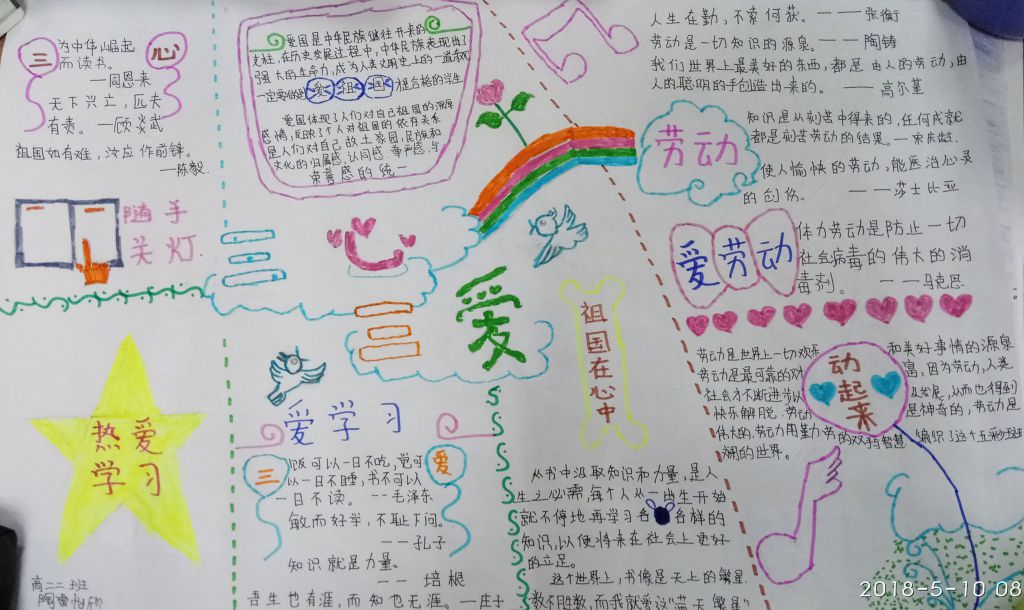 三 心
为中华崛起
而读书。
——周恩来
天下兴亡，匹夫
有责。——顾炎武
祖国如有难，汝应作前锋。
——陈毅
随手
关灯.
热爱
学习
高二二班
爱国是中华民族继往开来的
支柱，在历史发展过程中，中华民族表现出了
强大的生命力，成为人类文明史上的一道
一定要做
爱祖国
爱国体现了人们对自己祖国的深厚
感情，反映了个人对祖国的依存关系
是人们对自己故土家园，民族和
文化的归属感.认同感.尊严感.与
荣誉感的统一
三心
三爱
祖国在心中
爱学习
三 爱
饭可以一日不吃，觉可
以一日不睡，书不可以
一日不读。——毛泽东
敏而好学，不耻下问。
——孔子
知识就是力量。
——培根
吾生也有涯，而知也无涯。——庄子
从书中汲取知识和力量，是人
生之必需，每个人从一出生开始
就不停地再学习各
各样的
知识，以便将来在社会上更好
的立足。
这个世界上，书像是天上的繁星
数不胜数，而我就爱这“蓝天繁星”
人生在勤，不索何获。——张衡
劳动是一切知识的源泉。——陶铸
我们世界上最美好的东西，都是由人的劳动，由
人的聪明的手创造出来的。——高尔基
劳动
知识是从刻苦中得来的，任何成就
都是刻苦劳动的结果。——宋庆龄
使人愉快的劳动，能医治心灵
的创伤。——莎士比亚
爱劳动
体力劳动是防止一切
社会病毒的伟大的消
毒剂。——马克思
劳动是世界上一切欢乐
和美好事情的源泉
劳动是最可靠的财
富，因为劳动，人类
社会才不断进步
发展，从而也得到
快乐解脱.劳动
是神奇的，劳动是
伟大的.劳动用勤力劳的双手与智慧
编织了这个五彩斑
斓的世界。
动起来
2018-5-10 08